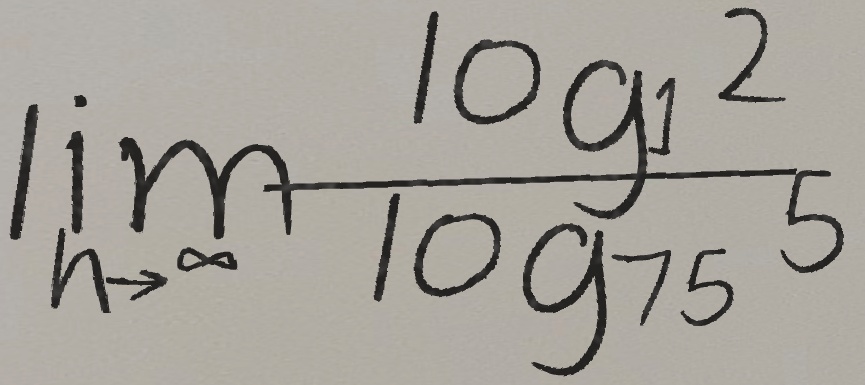 lim n→∞ log₁ 2 / log₇₅ 5